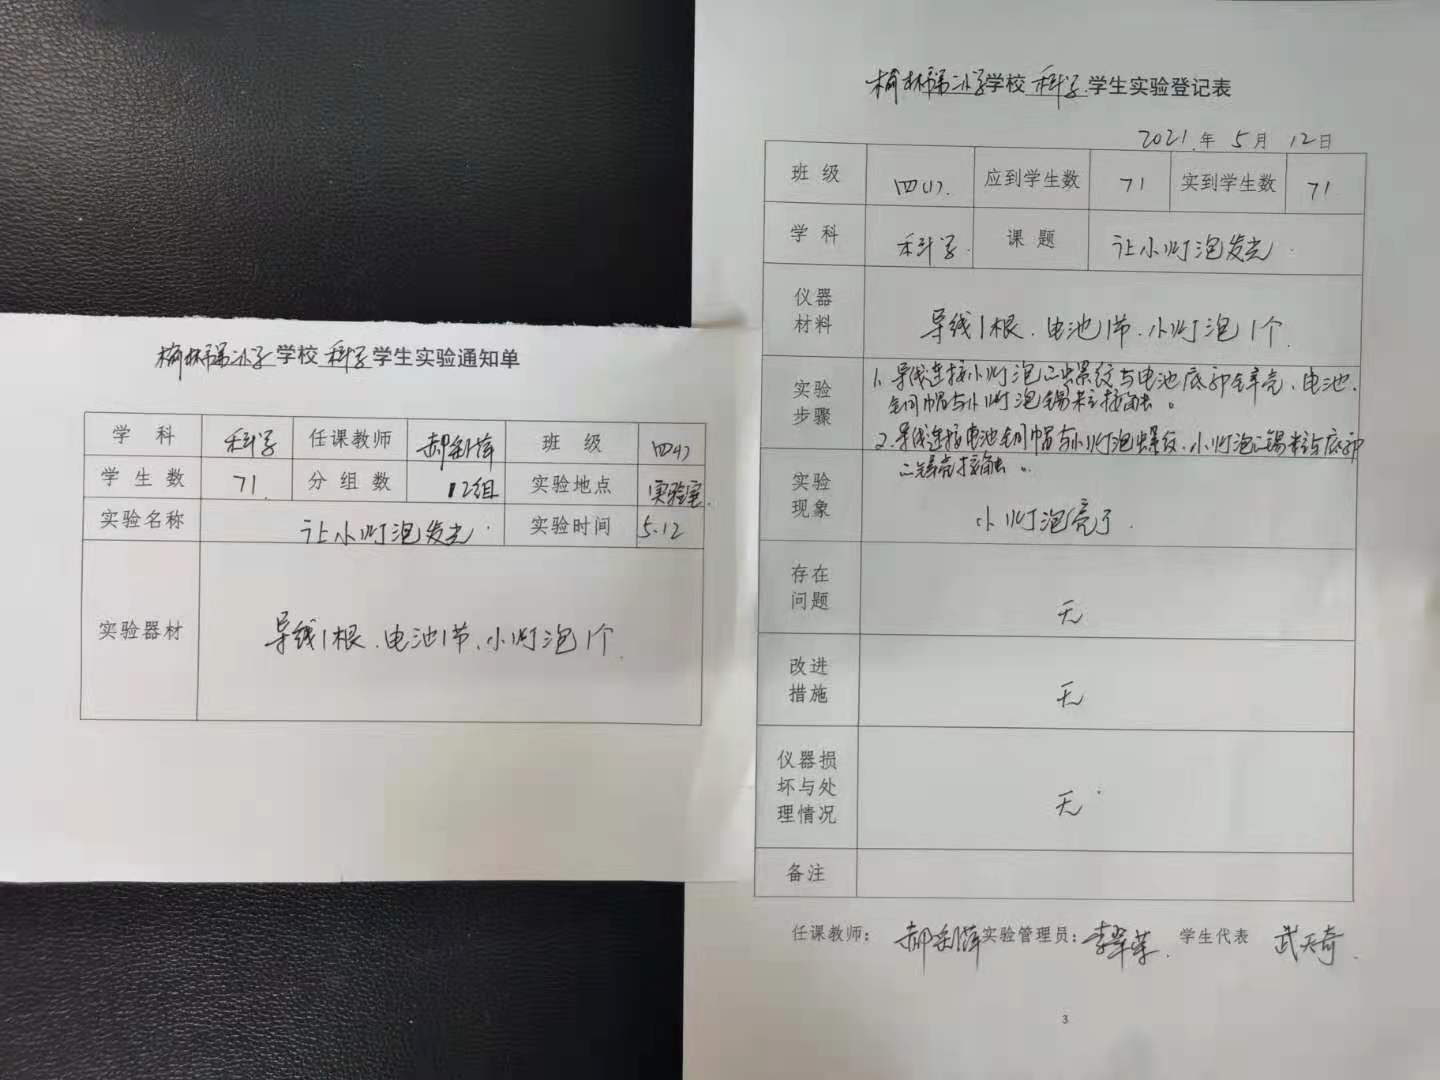 学校科学学生实验通知单
学科 科学 任课教师 班级 四(1)
学生数 71 分组数 12组 实验地点 实验室
实验名称 让小灯泡发光 实验时间 5.12
实验器材 导线1根、电池1节、小灯泡1个
学校科学学生实验登记表
2021年5月12日
班级 四(1) 应到学生数 71 实到学生数 71
学科 科学 课题 让小灯泡发光
仪器材料 导线1根、电池1节、小灯泡1个
实验步骤 1、导线连接小灯泡螺纹与电池底部锌壳、电池
铜帽与小灯泡锡粒接触。
2、导线连接电池铜帽与小灯泡螺纹、小灯泡锡粒与底部
锌壳接触。
实验现象 小灯泡亮了
存在问题 无
改进措施 无
仪器损坏与处理情况 无
备注
任课教师: 实验管理员: 学生代表 武天奇
3